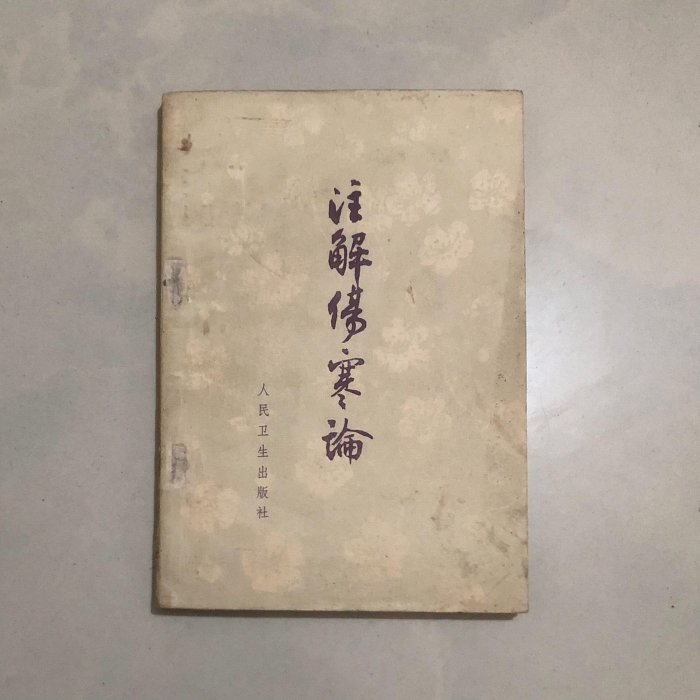 注解傷寒論
人民卫生出版社